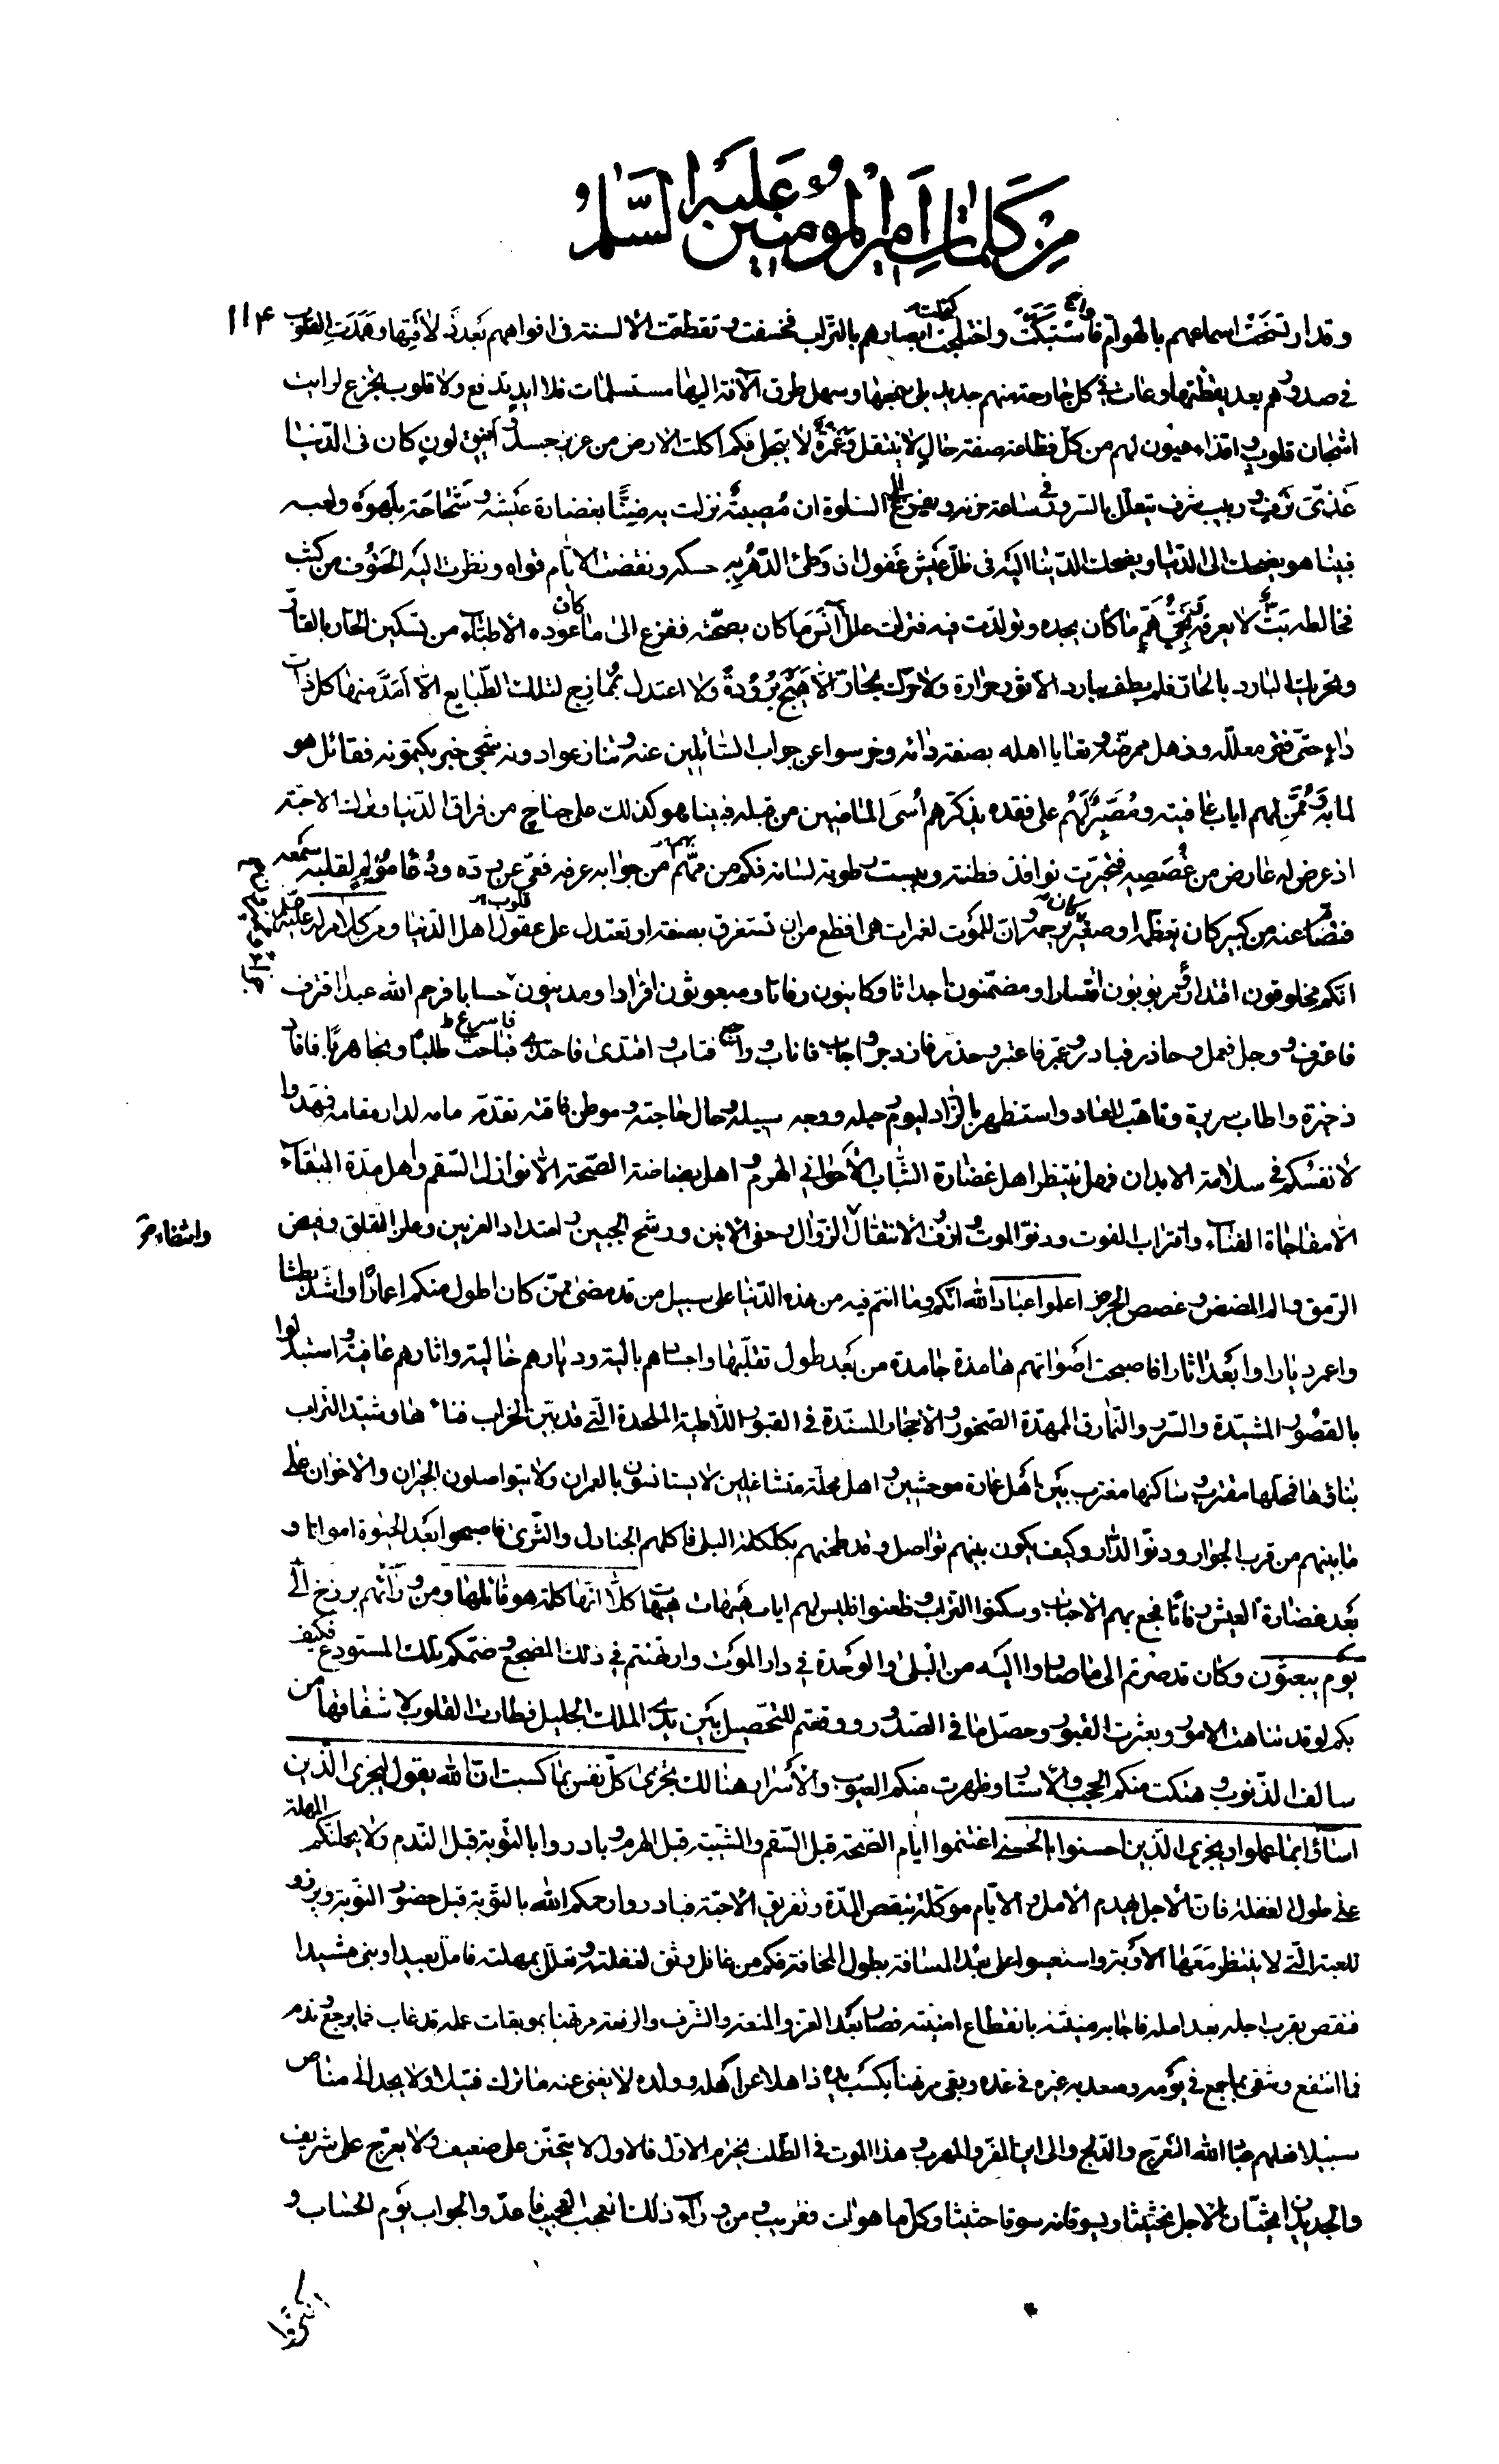 من كلمات امير المؤمنين عليه السلام
١١٤
وقد ارتسخت اسماعهم بالهوام فاستكت واكتحلت ابصارهم بالتراب فخسفت وتقطعت الالسنة فى افواههم بعد ذلاقتها وهمدت القلوب
في صدورهم بعد يقظتها وعاث في كل جارحة منهم جديد بلى سمجها وسهل طرق الآفة اليها مستسلمات فلا ايد تدفع ولا قلوب تجزع لرايت
اشجان قلوب واقذاء عيون لهم من كل فظاعة صفة حال لا تنتقل وغمرة لا تنجلى فكم اكلت الارض من عزيز جسد وانيق لون كان فى الدنيا
غذى ترف وربيب شرف يتعلل بالسرور في ساعة حزنه ويفزع الى السلوة ان مصيبة نزلت به ضنا بغضارة عيشه وشحاحة بلهوه ولعبه
فبينا هو يضحك الى الدنيا ويضحك الدنيا اليه فى ظل عيش غفول اذ وطئ الدهر به حسكه ونقضت الايام قواه ونظرت اليه الحتوف من كثب
فخالطه بث لا يعرفه ونجى هم ما كان يجده وتولدت فيه فترات علل آنس ما كان بصحته ففزع الى ما كان عوده الاطباء من تسكين الحار بالقار
وتحريك البارد بالحار فلم يطف ببارد الا ثور حرارة ولا حرك بحار الا هيج برودة ولا اعتدل بممازج لتلك الطبايع الا امد منها كل ذات
داء حتى فتر معلله وذهل ممرضه وتعايا اهله بصفة دائه وخرسوا عن جواب السائلين عنه وتنازعوا دونه شجى خبر يكتمونه فقائل هو
لما به وممن لهم اياب عافيته ومصبر لهم على فقده يذكرهم اسى الماضين من قبله فبينا هو كذلك على جناح من فراق الدنيا وترك الاحبة
اذ عرض له عارض من غصصه فتحيرت نوافذ فطنته ويبست رطوبة لسانه فكم من مهم من جوابه عرفه فعى عن رده ودعاء مؤلم لقلبه سمعه
فتصام عنه من كبير كان يعظمه او صغير كان يرحمه وان للموت لغمرات هى افظع من ان تستغرق بصفة او تعتدل على عقول اهل الدنيا ومن كلام له عليه
انكم مخلوقون اقتدارا ومربوبون اقتسارا ومضمنون اجداثا وكاينون رفاتا ومبعوثون افرادا ومدينون حسابا فرحم الله عبدا اقترف
فاعترف ووجل فعمل وحاذر فبادر وعبر فاعتبر وحذر فازدجر واجاب فاناب وراجع فتاب واقتدى فاحتذى فباحث طلبا ونجا هربا فافاد
ذخيرة واطاب سريرة وتاهب للمعاد واستظهر بالزاد ليوم رحيله ووجه سبيله وحال حاجته وموطن فاقته تقدم امامه لدار مقامه فمهدوا
لانفسكم في سلامة الابدان فهل ينتظر اهل غضارة الشباب الا حواني الهرم واهل بضاضة الصحة الا نوازل السقم واهل مدة البقاء
الا مفاجاة الفناء واقتراب الفوت ودنو الموت وازف الانتقال الزوال وحفز الانين ورشح الجبين وامتداد العرنين وعلز القلق وفيض
الرمق والم المضض وغصص الجرض اعلموا عباد الله انكم وما انتم فيه من هذه الدنيا على سبيل من قد مضى ممن كان اطول منكم اعمارا واشد بطشا
واعمر ديارا وابعد اثارا فاصبحت اصواتهم هامدة جامدة من بعد طول تقلبها واجسادهم بالية وديارهم خالية واثارهم عافية واستبدلوا
بالقصور المشيدة والسرر والنمارق الممهدة الصخور والاحجار المسندة في القبور اللاطية الملحدة التي قد بين الخراب فناءها وشيد التراب
بناؤها فمحلها مقترب وساكنها مغترب بين اهل عمارة موحشين واهل محلة متشاغلين لا يستانسون بالعمران ولا يتواصلون الجيران والاخوان على
ما بينهم من قرب الجوار ودنو الدار وكيف يكون بينهم تواصل وقد طحنهم بكلكله البلى فاكلهم الجنادل والثرى فاصبحوا بعد الحيوة امواتا و
بعد غضارة العيش رفاتا فجع بهم الاحباب وسكنوا التراب وظعنوا فليس لهم اياب هيهات هيهات كلا انها كلمة هو قائلها ومن ورائهم برزخ الى
يوم يبعثون وكان قد صرتم الى ما صاروا اليه من البلى والوحدة في دار الموت وارتهنتم في ذلك المضجع وضمكم ذلك المستودع فكيف
بكم لو قد تناهت الامور وبعثرت القبور وحصل ما في الصدور ووقفتم للتحصيل بين يدى الملك الجليل فطارت القلوب لاشفاقها من
سالف الذنوب وهتكت منكم الحجب والاستار وظهرت منكم العيوب والاسرار هنالك تجزى كل نفس بما كسبت ان الله يقول ليجزى الذين
اساؤا بما عملوا ويجزى الذين احسنوا بالحسنى اغتنموا ايام الصحة قبل السقم والشيبة قبل الهرم وبادروا بالتوبة قبل الندم ولا يحملنكم المهلة
على طول الغفلة فان الاجل يهدم الامل والايام موكلة بنقص المدة وتفريق الاحبة فبادروا رحمكم الله بالتوبة قبل حضور النوبة وبرزو
للغيبة التي لا ينتظر معها الاوبة واستعينوا على بعد المسافة بطول المخافة فكم من غافل وثق لغفلته وتعلل بمهلته فامل بعيدا وبنى مشيدا
فنقص بقرب اجله بعد امله فاجابه منيته بانقطاع امنيته فصار بعد العز والمنعة والشرف والرفعة مرتهنا بموبقات عمله قد غاب فما يرجع وندم
فما انتفع وشقى بما جمع في يومه وسعد به غيره في غده وبقى مرتهنا بكسب يده ذاهلا عن اهله وولده لا يغنى عنه ما ترك فتيلا ولا يجد الى مناص
سبيلا فعلام عباد الله التعرج والدلج والى اين المفر والمهرب وهذا الموت في الطلب يخترم الاول فالاول لا يتحنن على ضعيف ولا يعرج على شريف
والجديدان يحثان الاجل تحثيثا ويسوقانه سوقا حثيثا وكل ما هو ات فقريب ومن وراء ذلك العجب العجيب فاعدوا الجواب يوم الحساب و